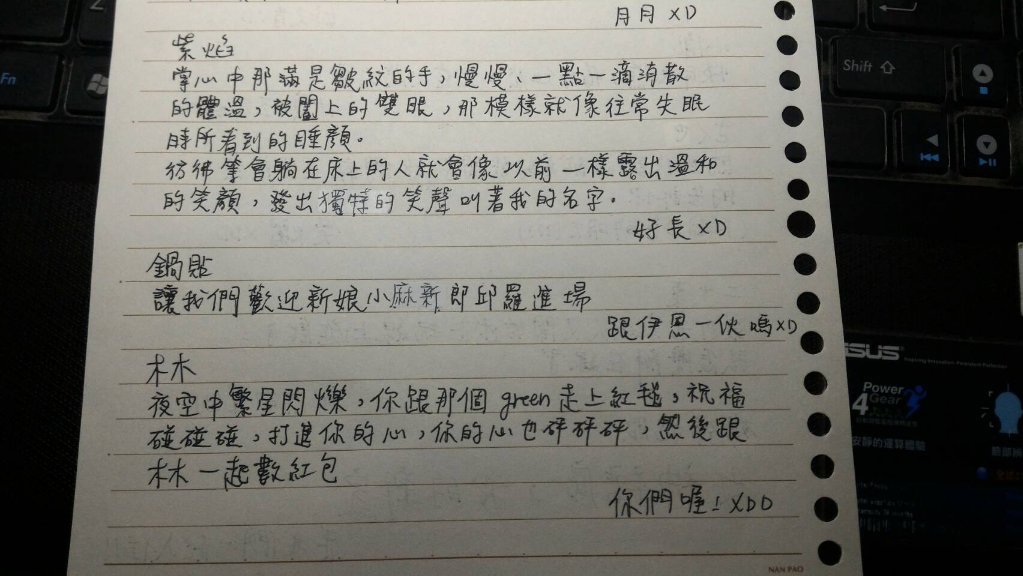 月月 XD
紫焰
掌心中那滿是皺紋的手，慢慢、一點一滴消散
的體溫，被闔上的雙眼，那模樣就像往常失眠
時所看到的睡顏。
彷彿筆會躺在床上的人就會像以前一樣露出溫和
的笑顏，發出獨特的笑聲叫著我的名字。
好長 XD
鍋貼
讓我們歡迎新娘小麻新郎邱羅進場
跟伊恩一伙嗎XD
木木
夜空中繁星閃爍，你跟那個 green 走上紅毯，祝福
碰碰碰，打進你的心，你的心也砰砰砰，然後跟
木木一起數紅包
你們喔！XDD
NAN PAO
Fn
Z
Shift
ASUS
Inspiring Innovation. Persistent Perfection
Power
4 Gear
安靜的運算體驗